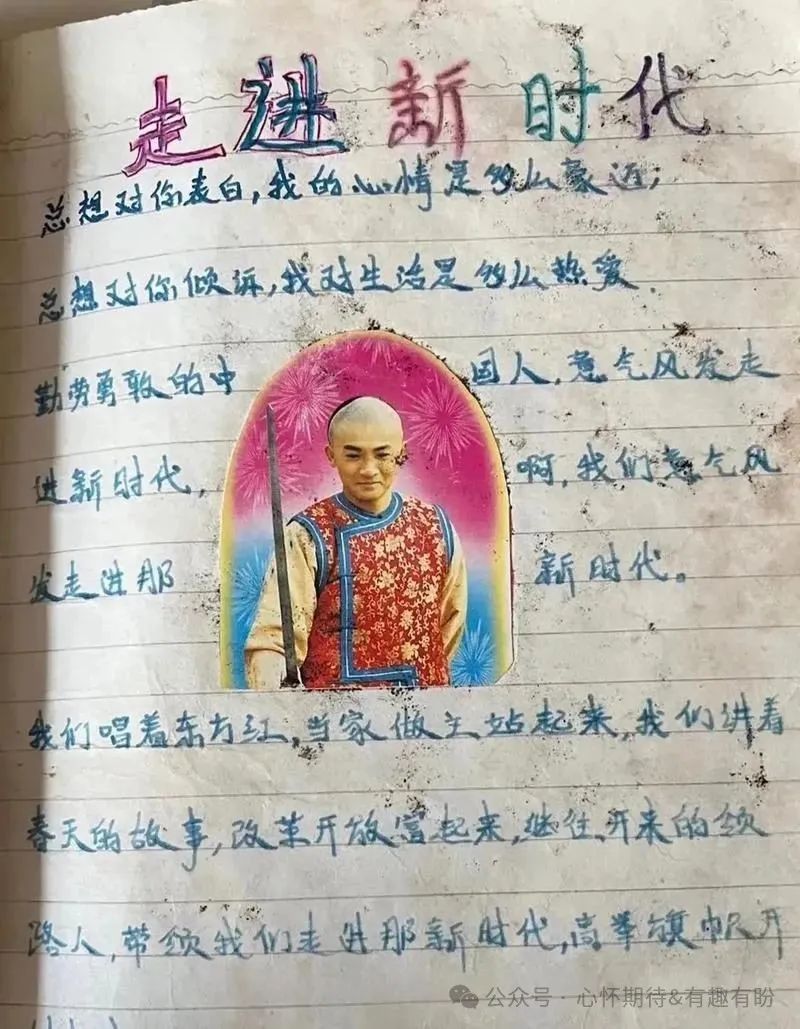 走进新时代
总想对你表白，我的心情是多么豪迈；
总想对你倾诉，我对生活是多么热爱.
勤劳勇敢的中国人，意气风发走
进新时代，啊，我们意气风
发走进那新时代。
我们唱着东方红，当家做主站起来，我们讲着
春天的故事，改革开放富起来，继往开来的领
路人，带领我们走进那新时代，高举旗帜开
公众号·心怀期待&有趣有盼